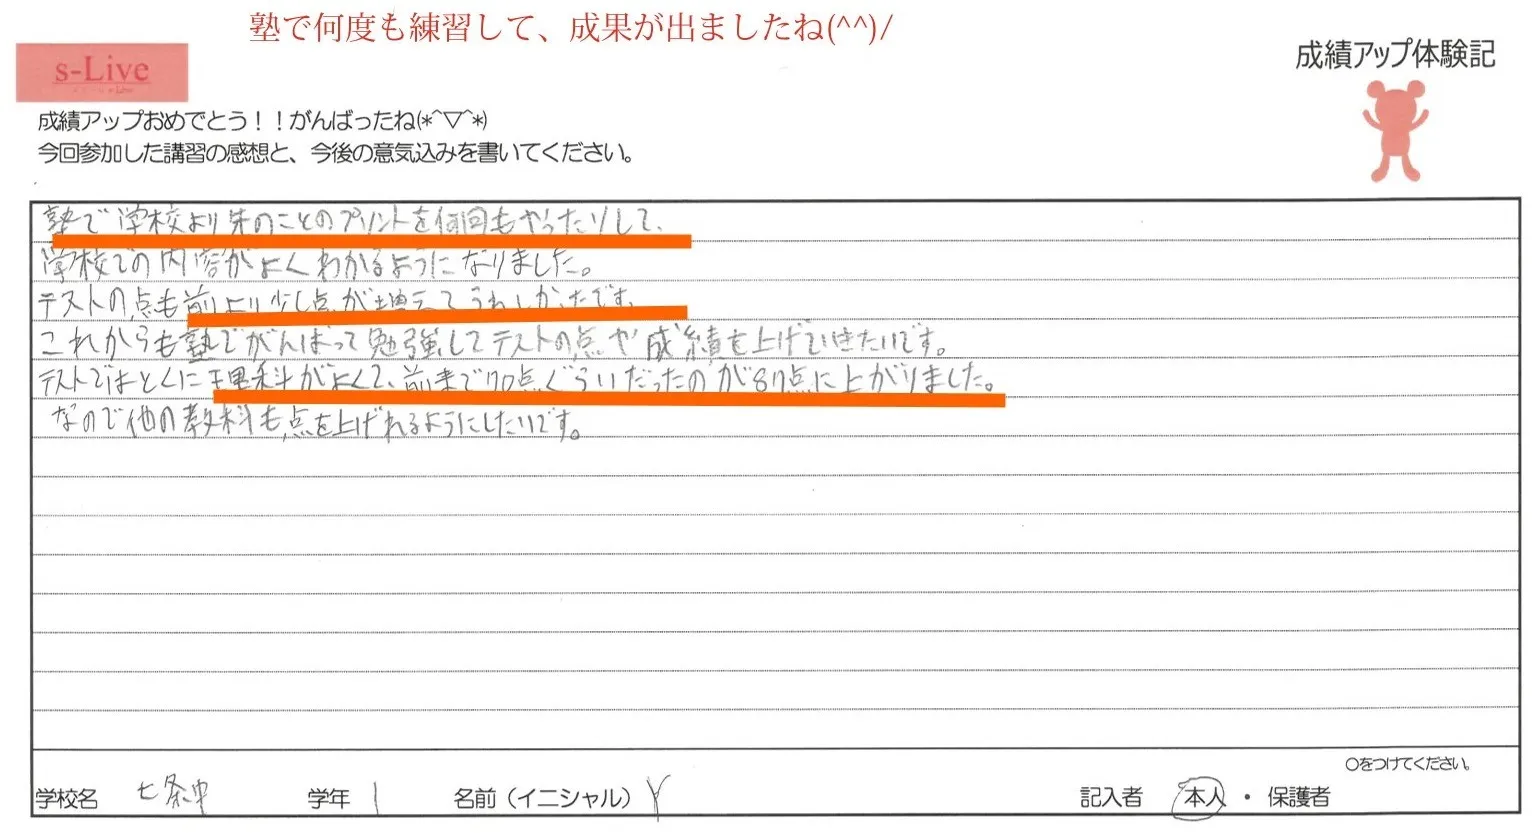 塾で何度も練習して、成果が出ましたね(^^)/
s-Live
成績アップ体験記
成績アップおめでとう！！がんばったね(*^▽^*)
今回参加した講習の感想と、今後の意気込みを書いてください。
塾で学校より先のことのプリントを何回もやったりして、
学校での内容がよくわかるようになりました。
テストの点も前より少し点が増えてうれしかったです。
これからも塾でがんばって勉強してテストの点や成績も上げていきたいです。
テストではとくに理科がよくて、前まで70点ぐらいだったのが87点に上がりました。
なので他の教科も点を上げれるようにしたいです。
○をつけてください。
学校名 七条中 学年 1 名前（イニシャル） Y 記入者 本人 ・ 保護者